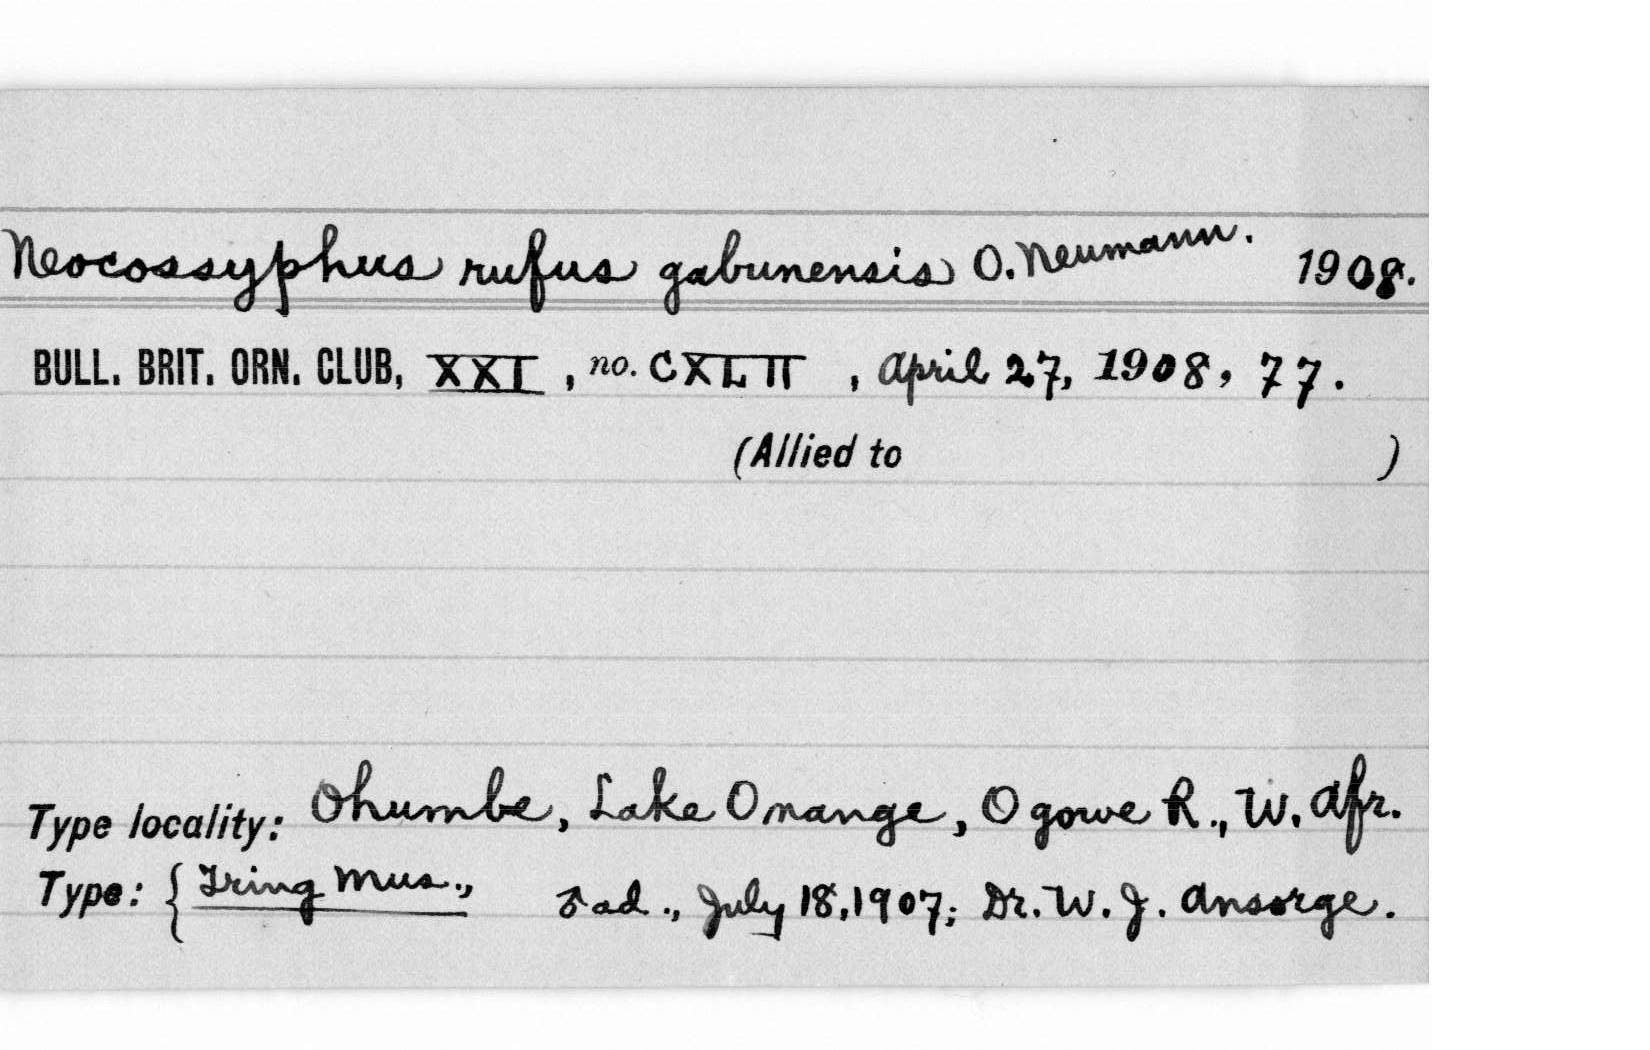 Neocossyphus rufus gabunensis O. Neumann. 1908.
BULL. BRIT. ORN. CLUB, XXI, no. CXLII, April 27, 1908, 77.
(Allied to )
Type locality: Ohumbe, Lake Onange, Ogowe R., W. Afr.
Type: { Tring Mus., ♂ ad., July 18, 1907; Dr. W. J. Ansorge.